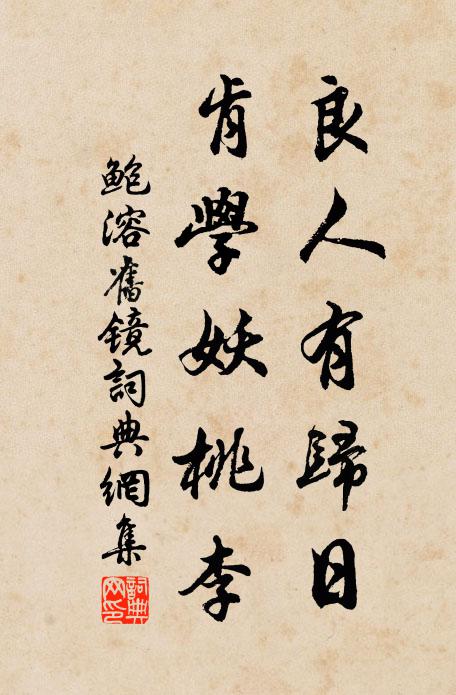 良人有歸日
肯學妖桃李
鮑溶舊镜詞典網集
詞典网印